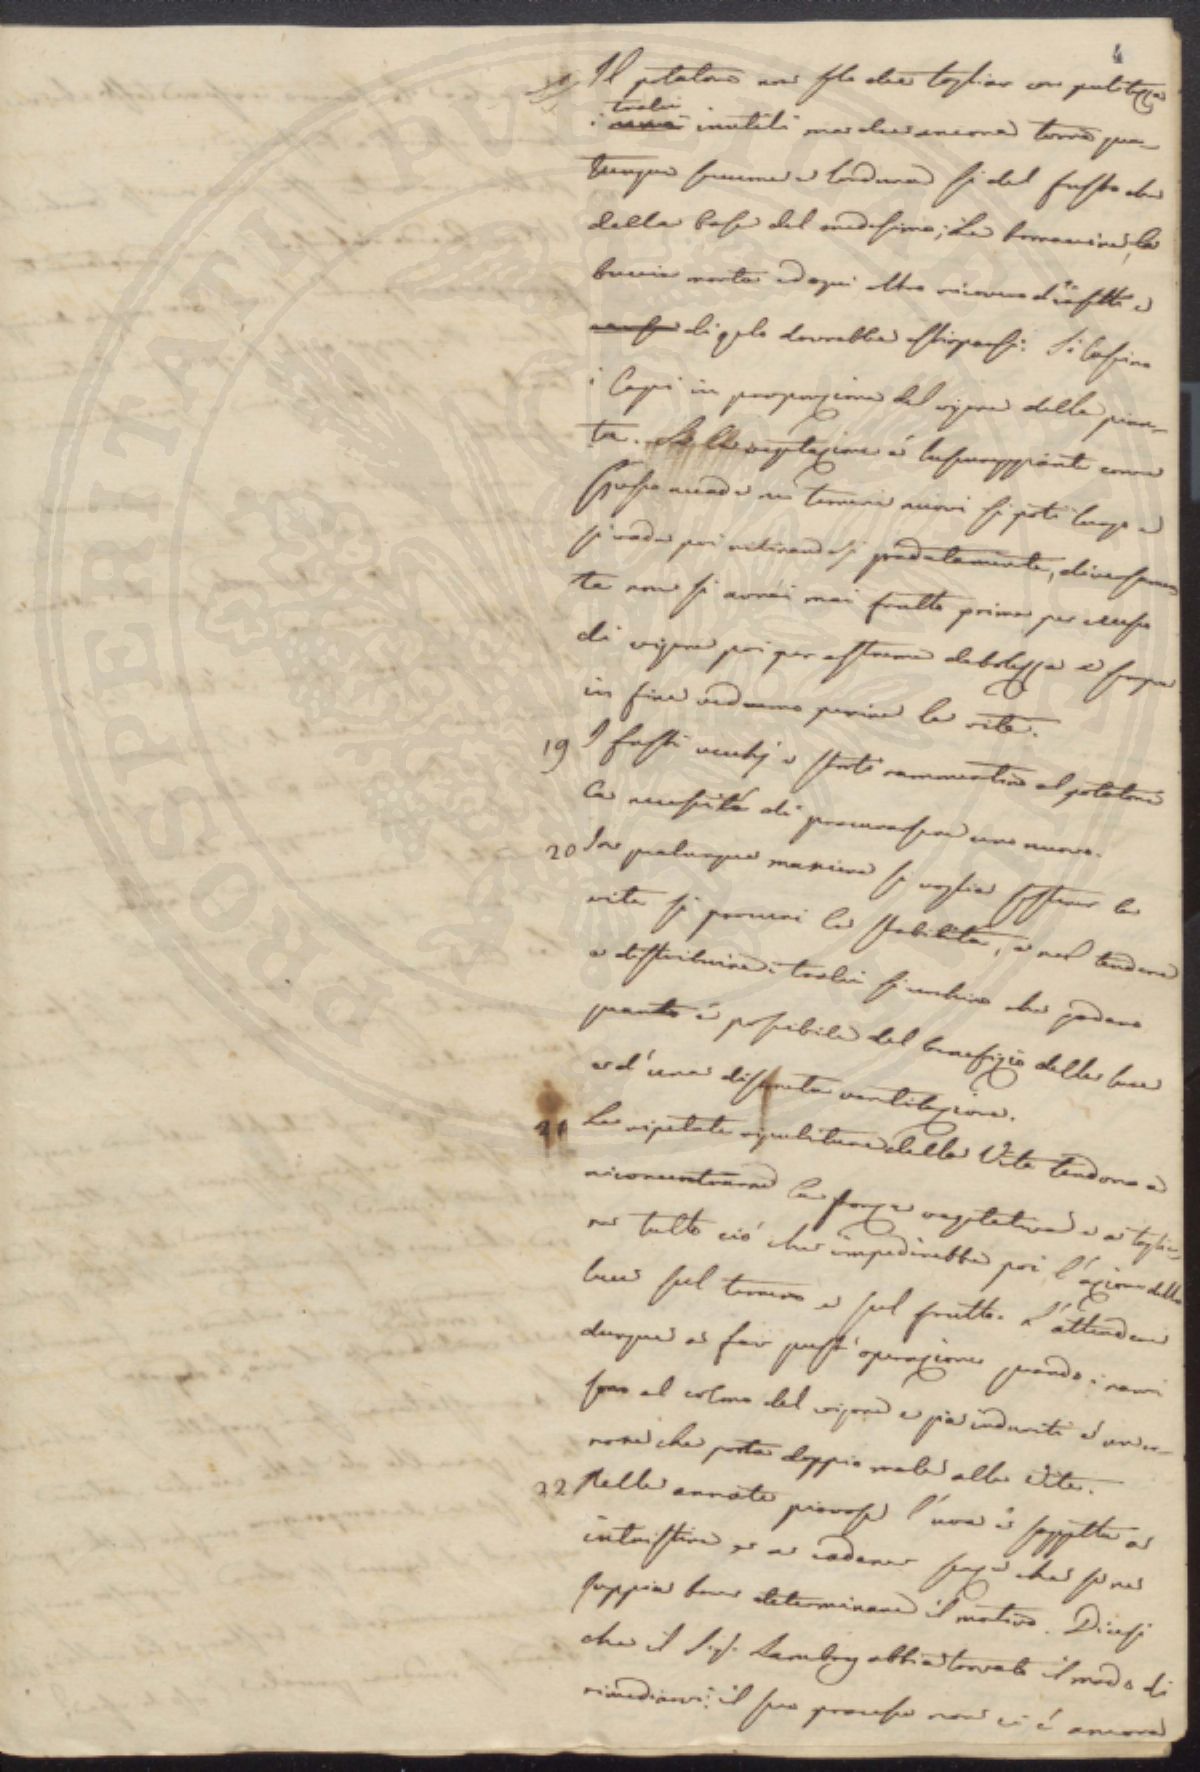 4
18 Il potatore non solo deve tagliar con pulitezza
tralci
i rami inutili ma deve ancora torre qua-
lunque seccume e lordura sì del fusto che
della base del medesimo; La borraccina, la
buccia morta ed ogni altro ricovero d'insetti e
di gelo dovrebbe estirparsi. Si lascino
i Capi in proporzione del vigore della pian-
ta. Se la vegetazione è lussureggiante come
spesso accade ne terreni nuovi si poti lungo e
si vada poi ritirandosi gradatamente, diversamen
te non si avrà mai frutto prima per eccesso
di vigore poi per estrema debolezza e forse
in fine vedremo perire la vite.
19 I fusti vecchj e storti rammentino al potatore
la necessità di procurarsene uno nuovo.
20 In qualunque maniera si voglia sostener la
vite si procuri la stabilità, e nel tendere
e distribuire i tralci si cerchino che godano
quanto è possibile del benefizio della luce
e d'una discreta ventilazione.
21 Le ripetute ripuliture della Vite tendono a
riconcentrarne la forza vegetativa e a toglie-
re tutto ciò che impedirebbe poi l'azione della
luce sul terreno e sul frutto. L'attendere
dunque a far quest'operazione quando i rami
sono al colmo del vigore e già induriti è un er-
rore che porta doppio male alla Vite.
22 Nelle annate piovose l'uva è soggetta a
intristire e a cadere senza che se ne
sappia bene determinare il motivo. Dicesi
che il Sig. Lambry abbia trovato il modo di
rimediarvi; il suo processo non ci è ancora
PROSPERITATI PUBLICAE